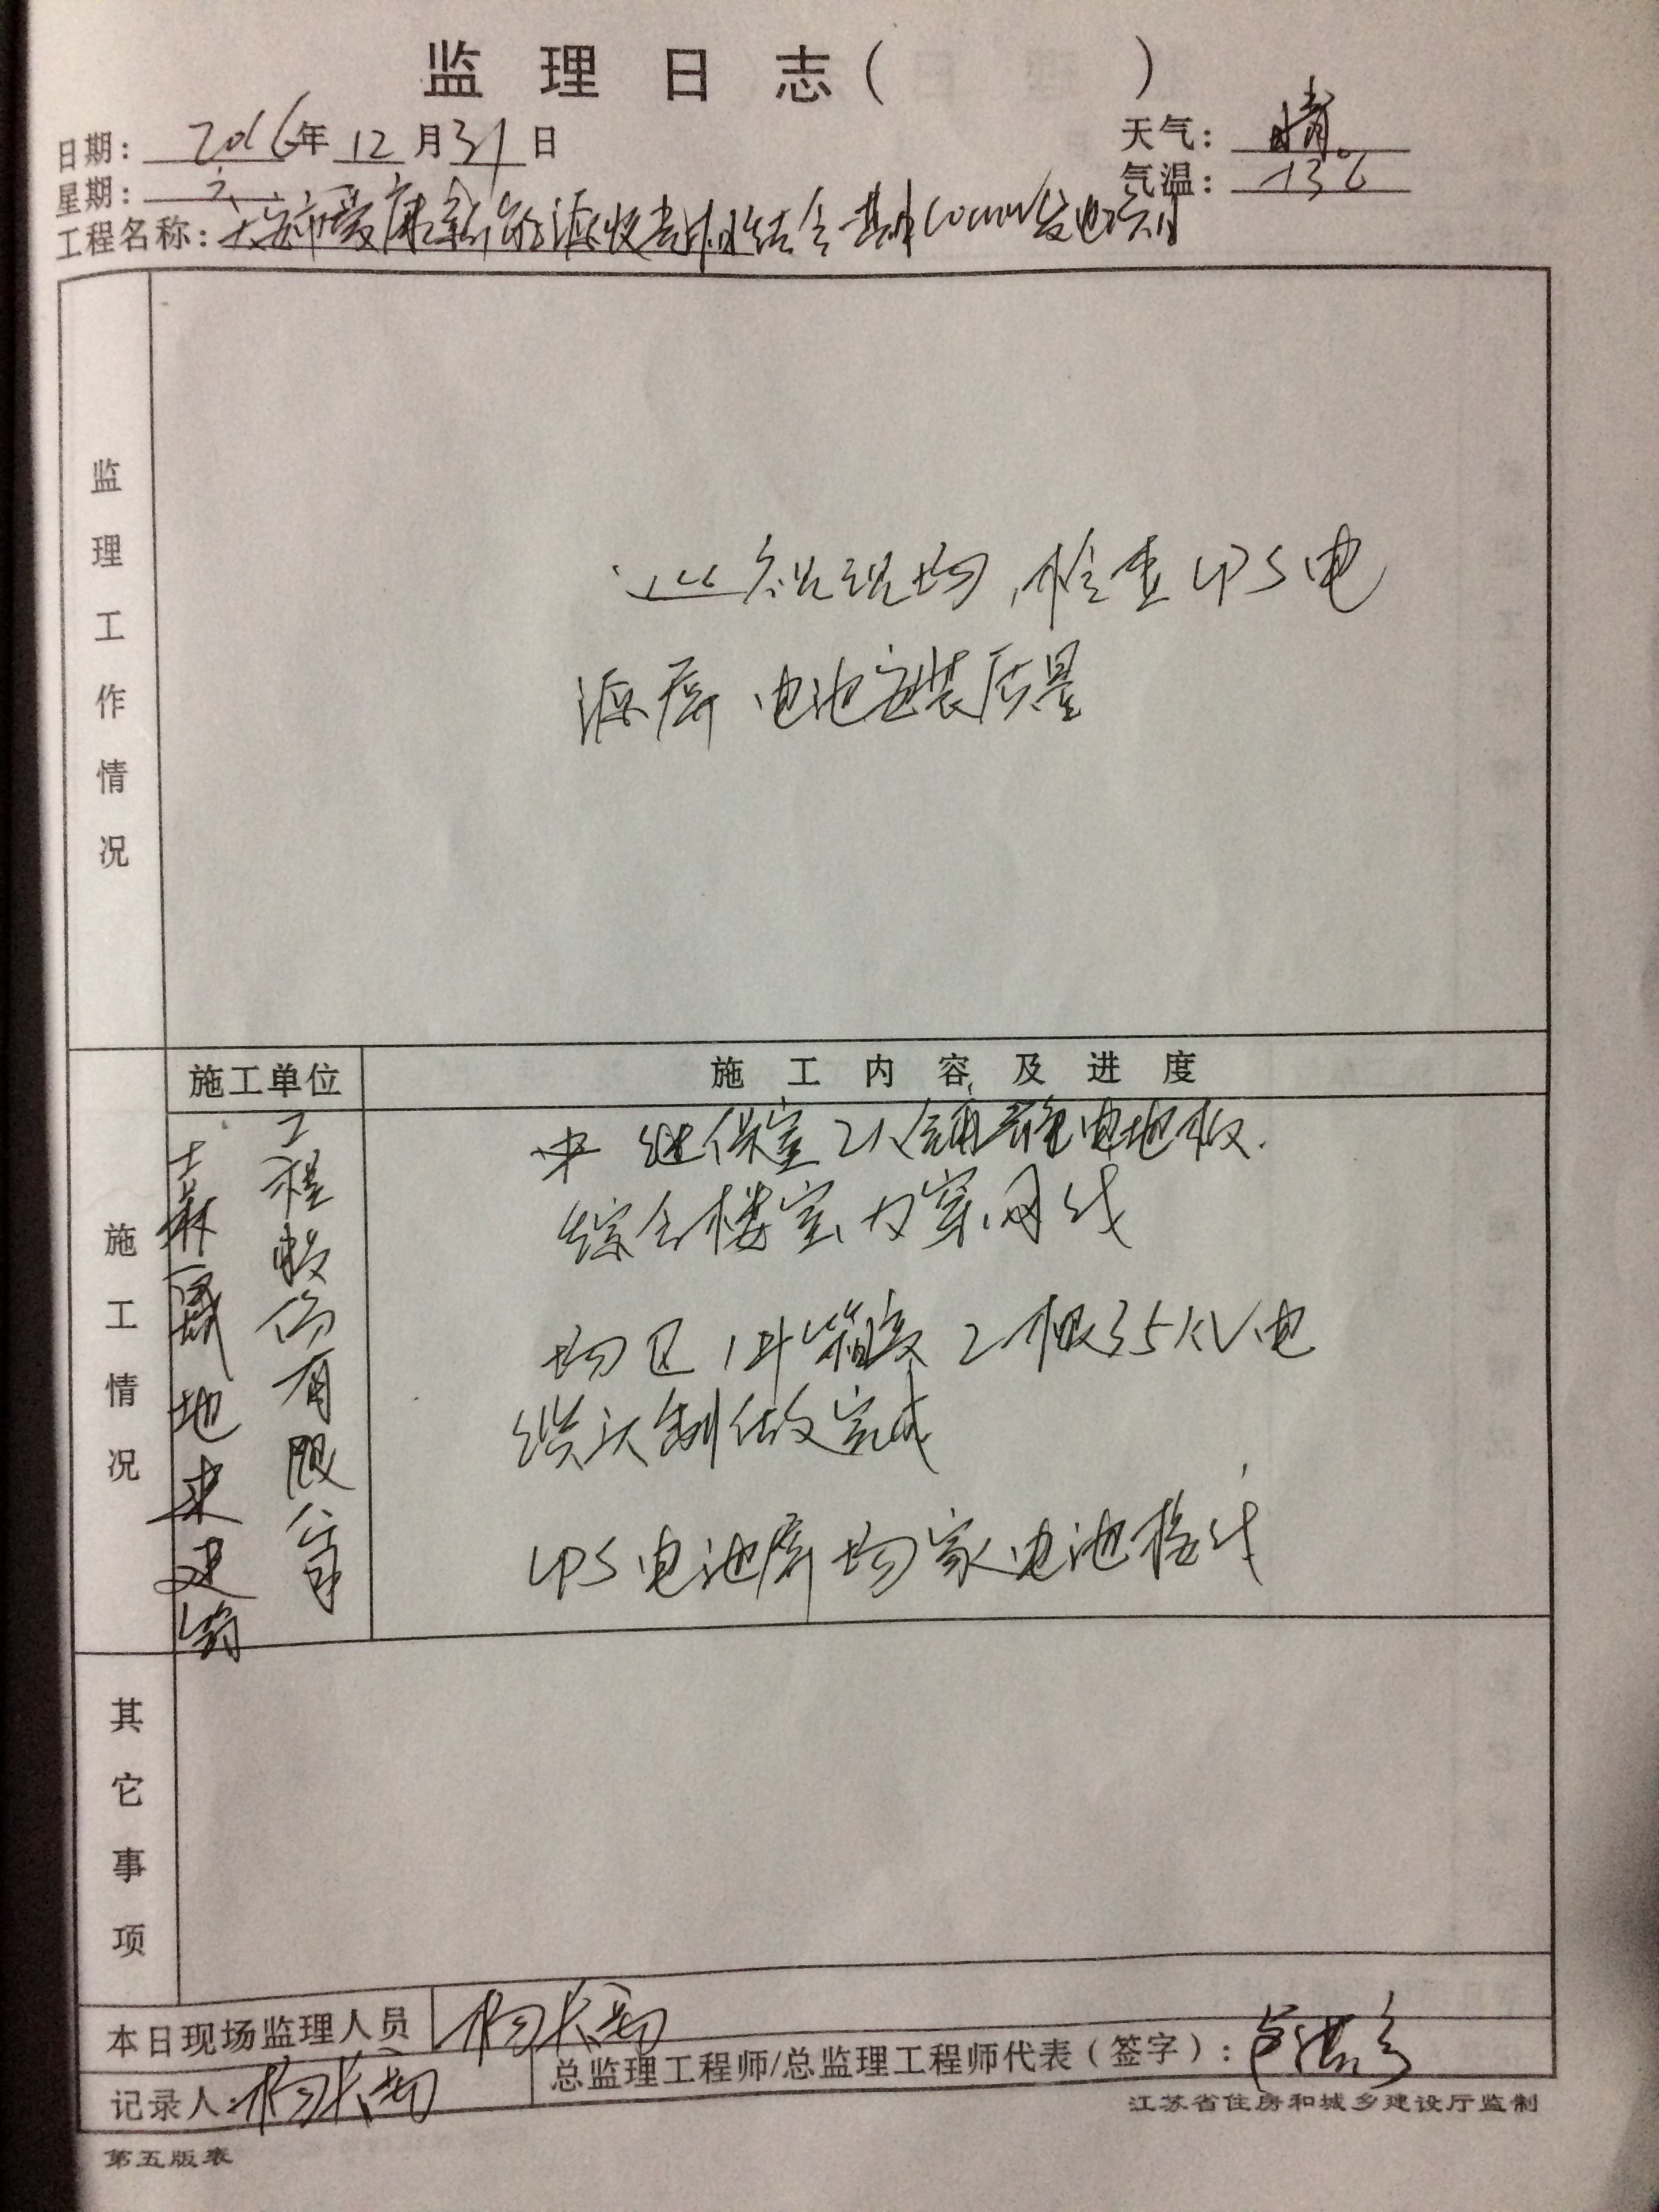 监理日志（ ）
日期：2016年12月31日
天气：晴
星期：六
气温：-13℃
工程名称：大安市爱康新能源 发电项目
监理工作情况
巡视现场，检查UPS电
源屏 电池安装质量
施工单位
施工内容及进度
施工情况
地来建筑
工程股份有限公司
继保室2人铺静电地板.
综合楼室内穿网线
场区1#箱变2根35KV电
缆头制做完成
UPS电池屏场家电池接线
其它事项
本日现场监理人员
总监理工程师/总监理工程师代表（签字）：
记录人：
江苏省住房和城乡建设厅监制
第五版表